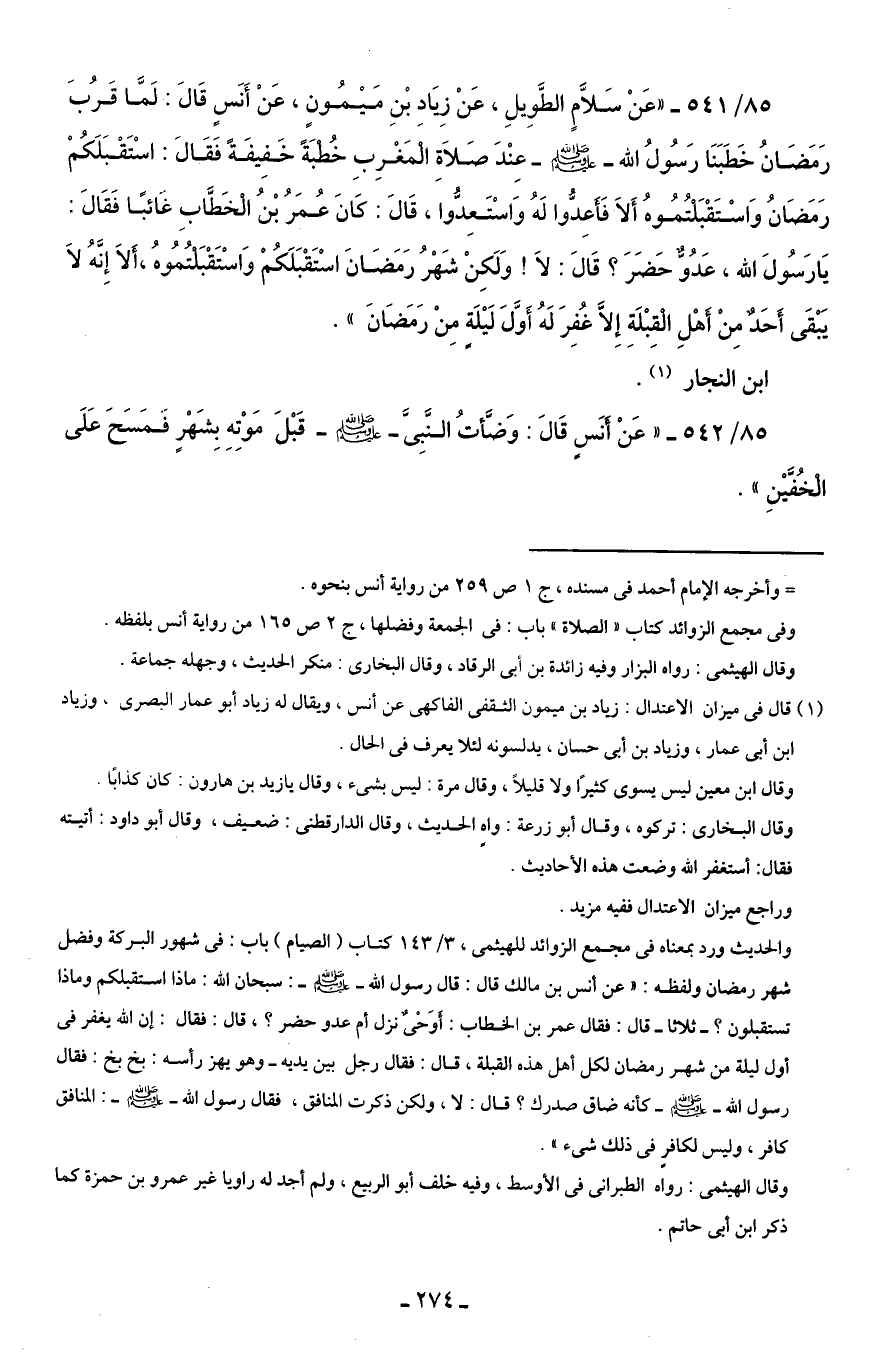 ٨٥/ ٥٤١ ـ «عَنْ سَـلاَّمٍ الطَّوِيلِ ، عَنْ زِيَادِ بْنِ مَـيْـمُـونٍ ، عَنْ أَنَسٍ قَالَ : لَمَّا قَـرُبَ
رَمَضَـانُ خَطَبَنَا رَسُولُ الله ـ ﷺ ـ عِنْدَ صَـلاَةِ الْمَغْـرِبِ خُطْبَةً خَـفِيـفَةً فَقَـالَ : اسْتَقْـبَلَكُمْ
رَمَضَانُ وَاسْـتَقْبَلْتُمـوهُ أَلاَ فَأَعِدُّوا لَهُ وَاسْتَـعِدُّوا ، قَالَ : كَانَ عُـمَرُ بْنُ الْخَطَّابِ غَائبًا فَقَالَ :
يَارَسُولَ الله ، عَدُوٌّ حَضَرَ ؟ قَالَ : لاَ ! وَلَكِنْ شَهْرُ رَمَضَـانَ اسْتَقْبَلَكُمْ وَاسْتَقْبَلْتُمُوهُ ،أَلاَ إِنَّهُ لاَ
يَبْقَى أَحَدٌ مِنْ أَهْلِ الْقِبْلَةِ إِلاَّ غُفِرَ لَهُ أَوَّلَ لَيْلَةٍ مِنْ رَمَضَانَ » .
ابن النجار (١) .
٨٥/ ٥٤٢ ـ « عَنْ أَنَسٍ قَالَ : وَضَّأتُ الـنَّبِىَّ ـ ﷺ ـ قَبْلَ مَوْتِهِ بِشَهْرٍ فَـمَسَحَ عَلَى
الْخُفَّيْنِ » .
= وأخرجه الإمام أحمد فى مسنده ، ج ١ ص ٢٥٩ من رواية أنس بنحوه .
وفى مجمع الزوائد كتاب « الصلاة » باب : فى الجمعة وفضلها ، ج ٢ ص ١٦٥ من رواية أنس بلفظه .
وقال الهيثمى : رواه البزار وفيه زائدة بن أبى الرقاد ، وقال البخارى : منكر الحديث ، وجهله جماعة .
(١) قال فى ميزان الاعتدال : زياد بن ميمون الثـقفى الفاكهى عن أنس ، ويقال له زياد أبو عمار البصرى ، وزياد
ابن أبى عمار ، وزياد بن أبى حسان ، يدلسونه لئلا يعرف فى الحال .
وقال ابن معين ليس يسوى كثيرًا ولا قليلاً ، وقال مرة : ليس بشىء ، وقال يازيد بن هارون : كان كذابًا .
وقال البـخارى : تركوه ، وقـال أبو زرعة : واهِ الحـديث ، وقال الدارقطنى : ضعـيف ، وقال أبو داود : أتيـته
فقال: أستغفر الله وضعت هذه الأحاديث .
وراجع ميزان الاعتدال ففيه مزيد .
والحديث ورد بمعناه فى مجـمع الزوائد للهيثمى ، ٣/ ١٤٣ كتـاب ( الصيام ) باب : فى شهور البـركة وفضل
شهر رمضان ولفظـه : « عن أنس بن مالك قال : قال رسول الله ـ ﷺ ـ : سبحان الله : ماذا استـقبلكم وماذا
تستقبلون ؟ ـ ثلاثا ـ قال : فقال عمر بن الخـطاب : أَوَحْىٌ نزل أم عدو حضر ؟ ، قال : فقال : إن الله يغفر فى
أول ليلة من شهـر رمضان لكل أهل هذه القبلة ، قـال : فقال رجل بين يديه ـ وهو يهز رأسـه : بخ بخ : فقال
رسول الله ـ ﷺ ـ كأنه ضاق صدرك ؟ قـال : لا ، ولكن ذكرت المنافق ، فقال رسول الله ـ ﷺ ـ : المنافق
كافر ، وليس لكافرٍ فى ذلك شىء » .
وقال الهيثمى : رواه الطبرانى فى الأوسط ، وفيه خلف أبو الربيع ، ولم أجد له راويا غير عمرو بن حمزة كما
ذكر ابن أبى حاتم .
ـ ٢٧٤ ـ